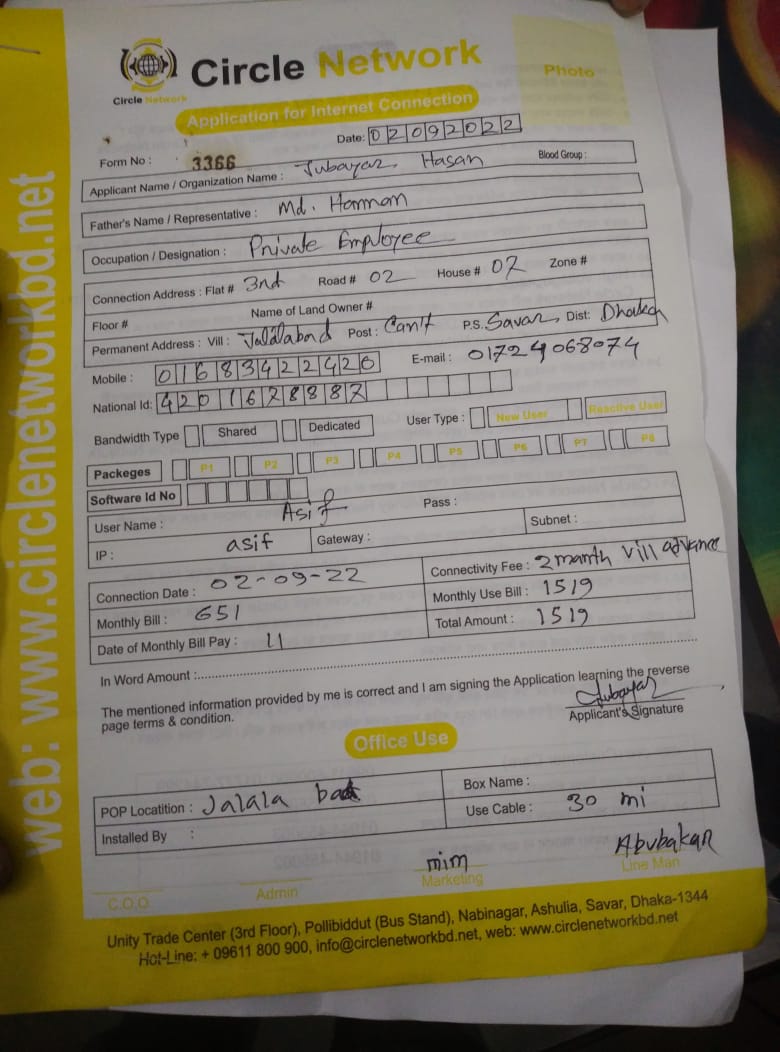 web: www.circlenetworkbd.net
Circle Network
Circle Network
Photo
Application for Internet Connection
Date: 02092022
Form No : 3366
Applicant Name / Organization Name : Jubayar Hasan Blood Group :
Father's Name / Representative : Md. Hamman
Occupation / Designation : Private Employee
Connection Address : Flat # 3rd Road # 02 House # 07 Zone #
Floor # Name of Land Owner #
Permanent Address : Vill : Jalalabad Post : Cantt P.S. Savar, Dist: Dhaka
Mobile : 01683422420 E-mail : 01724068074
National Id: 4201628887
Bandwidth Type Shared Dedicated User Type : New User Reactive User
Packeges P1 P2 P3 P4 P5 P6 P7 P8
Software Id No
User Name : Asif Pass :
IP : asif Gateway : Subnet :
Connection Date : 02-09-22 Connectivity Fee : 2 manth vill advance
Monthly Bill : 651 Monthly Use Bill : 1519
Date of Monthly Bill Pay : 11 Total Amount : 1519
In Word Amount :
The mentioned information provided by me is correct and I am signing the Application learning the reverse
page terms & condition.
Jubayar
Applicant's Signature
Office Use
POP Locatition : Jalala bad Box Name :
Installed By : Use Cable : 30 mi
mim Abubakar
C.O.O Admin Marketing Line Man
Unity Trade Center (3rd Floor), Pollibiddut (Bus Stand), Nabinagar, Ashulia, Savar, Dhaka-1344
Hot-Line: + 09611 800 900, info@circlenetworkbd.net, web: www.circlenetworkbd.net